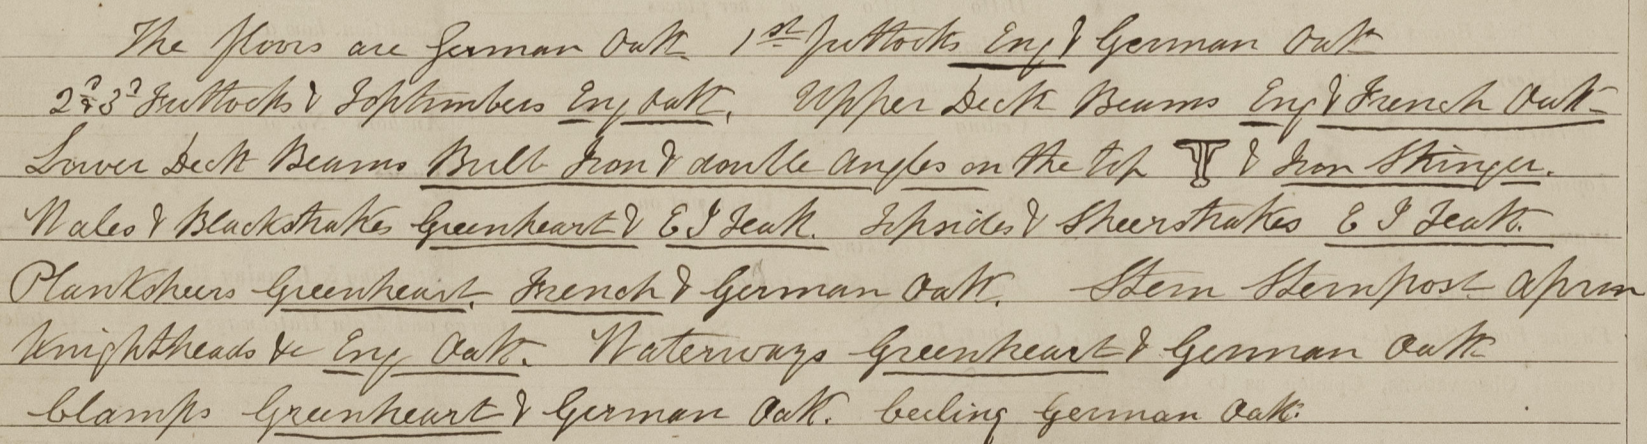 The floors are German Oak 1st futtocks Eng & German Oak
2d & 3d Futtocks & Toptimbers Eng Oak. Upper Deck Beams Eng & French Oak
Lower Deck Beams Bulb Iron & double angles on the top & Iron Stringer.
Wales & Blackstrakes Greenheart & E I Teak. Topsides & Sheerstrakes E I Teak.
Planksheers Greenheart, French & German Oak. Stem Sternpost Apron
Knightheads &c Eng Oak. Waterways Greenheart & German Oak
Clamps Greenheart & German Oak. Ceeling German Oak.